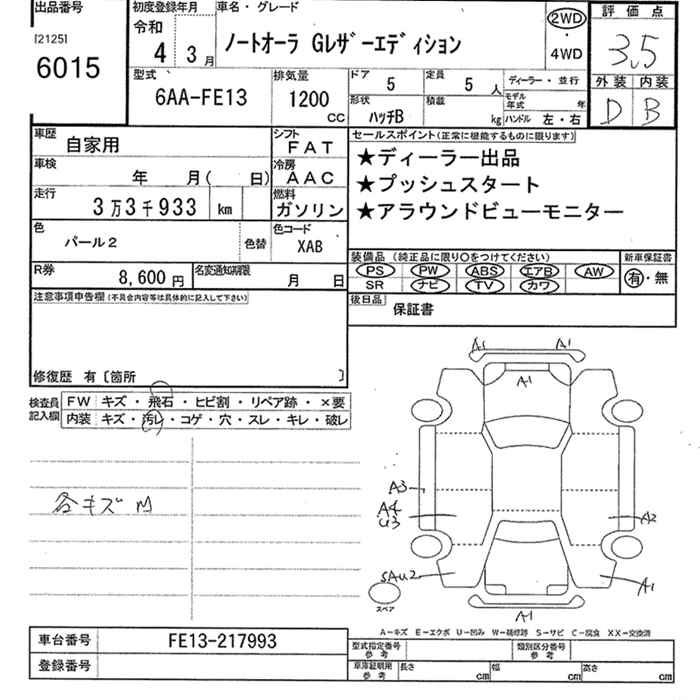 出品番号
[2125]
6015
初度登録年月
令和
4 3月
車名・グレード
ノートオーラ Gレザーエディション
2WD
・
4WD
評価点
3.5
外装 内装
D B
型式
6AA-FE13
排気量
1200
CC
ドア
5
定員
5人
ディーラー・並行
形状
ハッチB
積載
kg
モデル年式
年
ハンドル 左・右
車歴
自家用
シフト
FAT
車検
年 月( 日)
冷房
AAC
走行
3万3千933 km
燃料
ガソリン
色
パール2
色替
色コード
XAB
セールスポイント(正常に機能するものに限ります)
★ディーラー出品
★プッシュスタート
★アラウンドビューモニター
装備品 (純正品に限り〇をつけてください)
新車保証書
PS PW ABS エアB AW
SR ナビ TV カワ
有・無
R券
8,600円
名変通知期限
月 日
後日品
保証書
注意事項申告欄(不具合内容等は具体的に記入して下さい)
修復歴 有〔箇所 〕
検査員記入欄
FW キズ・飛石・ヒビ割・リペア跡・×要
内装 キズ・汚レ・コゲ・穴・スレ・キレ・破レ
各キズ M
A1 A1
A1
A3
A4
U3
A2
SAU2
A1
A1
スペア
A-キズ E-エクボ U-凹み W-補修跡 S-サビ C-腐食 XX-交換済
車台番号
FE13-217993
登録番号
型式指定番号
参考
類別区分番号
参考
車庫証明用
参考
長さ
cm
幅
cm
高さ
cm